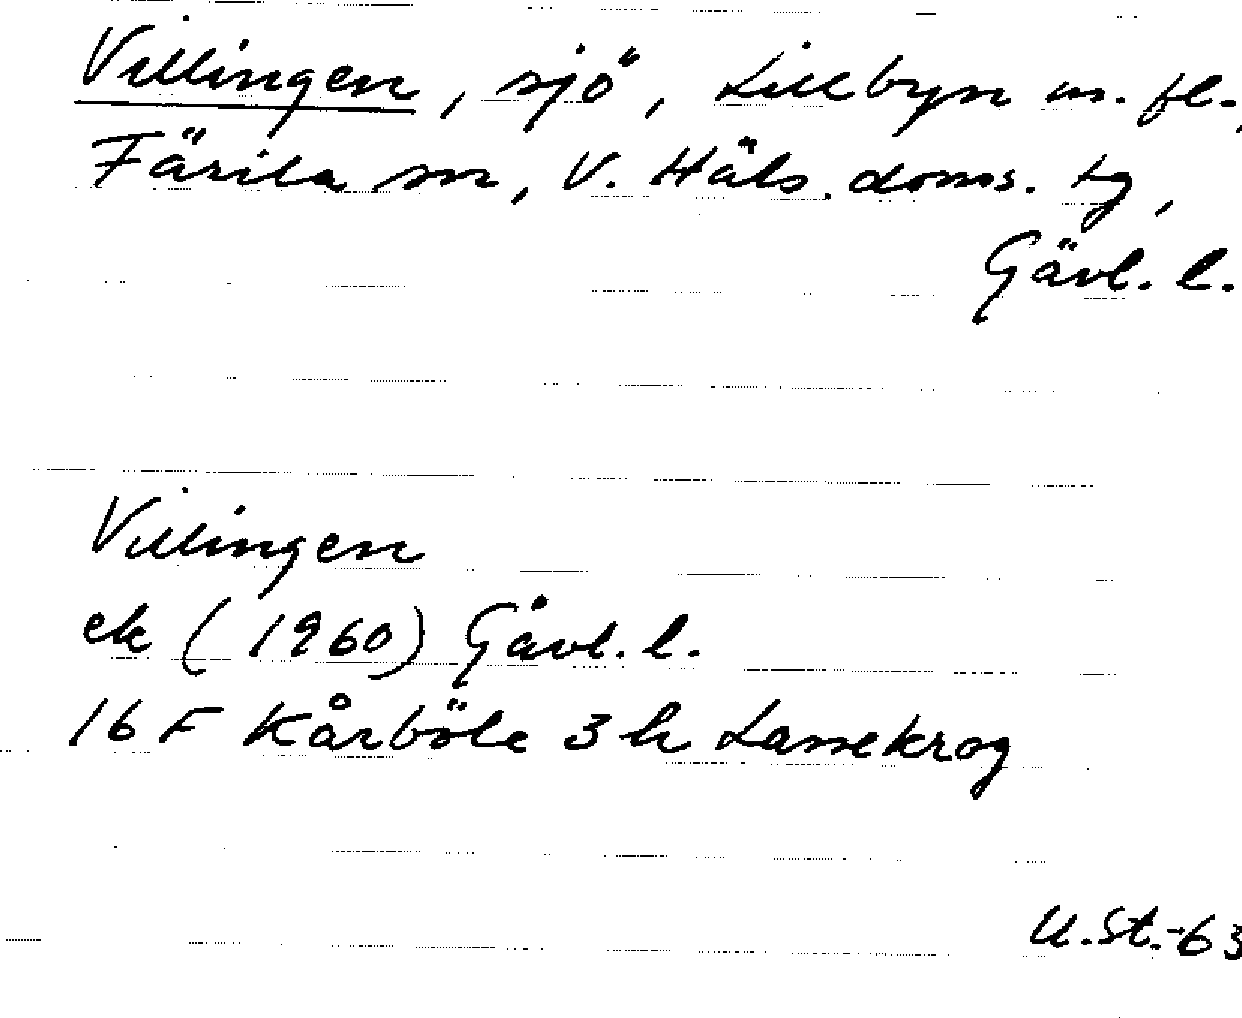 Villingen, sjö, Lillbyn m. fl.,
Färila sn, V. Häls. doms. tg,
Gävl. l.
Villingen
ek (1960) Gävl. l.
16 F Kårböle 3 h Lassekrog
U.St.-63